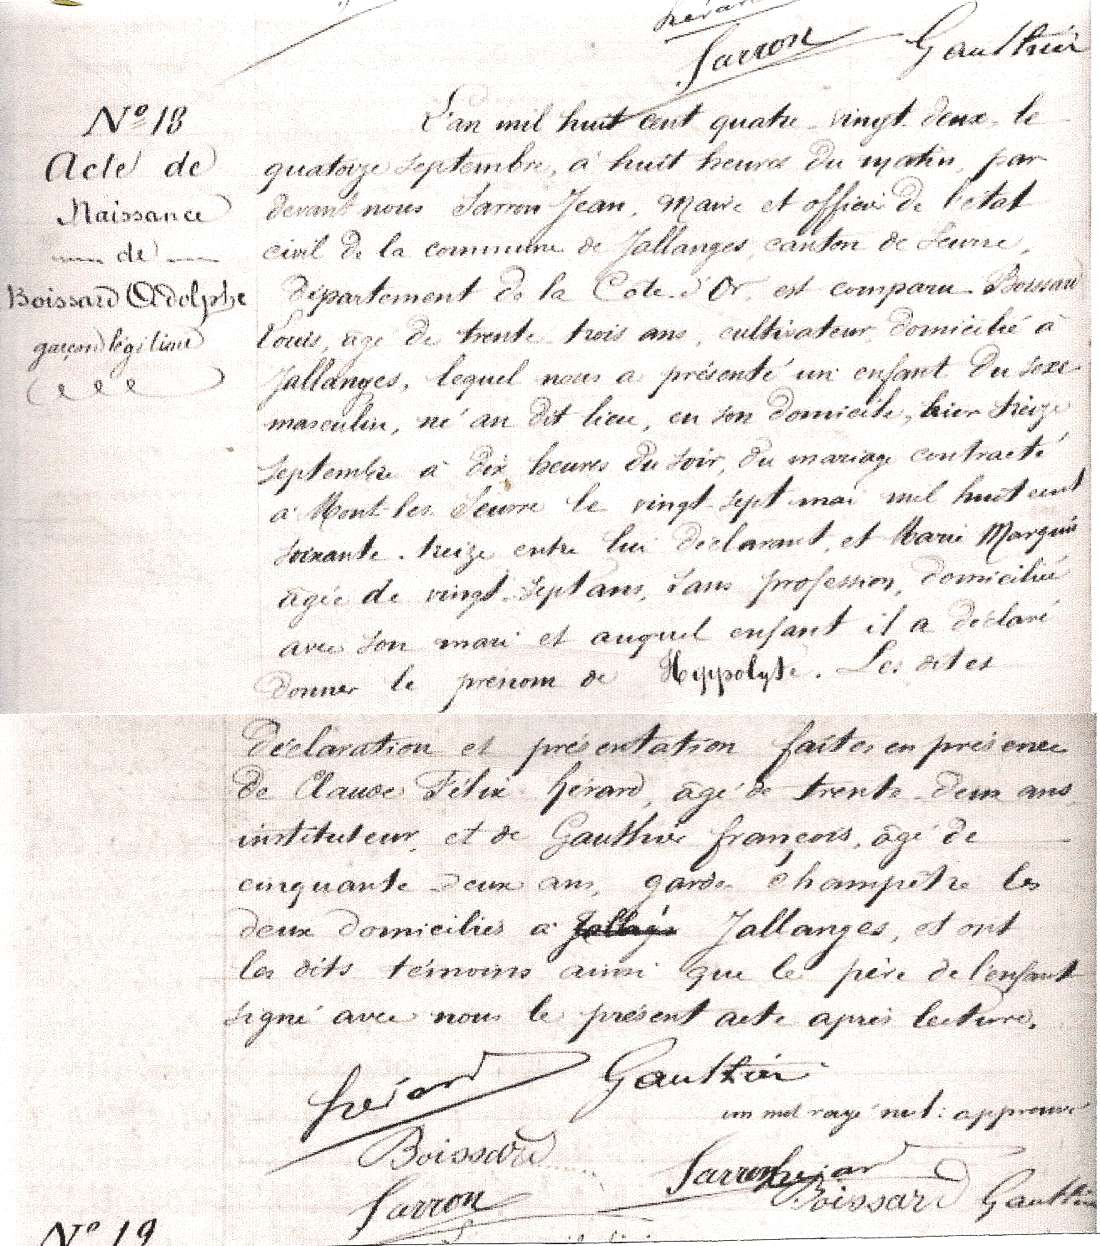 Sarron Gauthier
N° 18
Acte de
Naissance
de
Boissard Adolphe
garçon légitime
L'an mil huit cent quatre-vingt-deux, le
quatorze septembre, à huit heures du matin, par
devant nous Sarron Jean, Maire et officier de l'état
civil de la commune de Jallanges, canton de Seurre,
département de la Côte-d'Or, est comparu Boissard
Louis, âgé de trente trois ans, cultivateur, domicilié à
Jallanges, lequel nous a présenté un enfant du sexe
masculin, né au dit lieu, en son domicile, hier treize
septembre à dix heures du soir, du mariage contracté
à Mont-les-Seurre le vingt-sept mai mil huit cent
soixante-treize entre lui déclarant, et Marie Marquis
âgée de vingt-sept ans, sans profession, domiciliée
avec son mari et auquel enfant il a déclaré
donner le prénom de Hippolyte. Les dites
déclaration et présentation faites en présence
de Claude Félix Hérard, âgé de trente-deux ans,
instituteur, et de Gauthier françois, âgé de
cinquante-deux ans, garde champêtre les
deux domiciliés à Jallanges, et ont
les dits témoins ainsi que le père de l'enfant
signé avec nous le présent acte après lecture.
hérard Gauthier
un mot rayé nul : approuvé
Boissard
Sarron hérard Boissard Gauthier
Sarron
N° 19